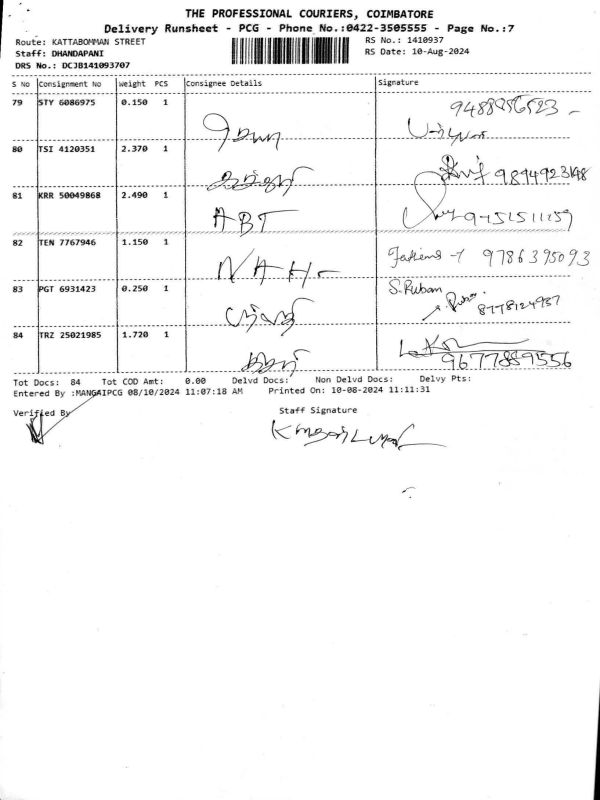 THE PROFESSIONAL COURIERS, COIMBATORE
Delivery Runsheet - PCG - Phone No.:0422-3505555 - Page No.:7
Route: KATTABOMMAN STREET RS No.: 1410937
Staff: DHANDAPANI RS Date: 10-Aug-2024
DRS No.: DCJB141093707
S No Consignment No Weight PCS Consignee Details Signature
79 STY 6086975 0.150 1
80 TSI 4120351 2.370 1 9894923148
81 KRR 50049868 2.490 1 ABT
82 TEN 7767946 1.150 1 NAH 9786395093
83 PGT 6931423 0.250 1 S.Ruban
8778124937
84 TRZ 25021985 1.720 1 9677889556
Tot Docs: 84 Tot COD Amt: 0.00 Delvd Docs: Non Delvd Docs: Delvy Pts:
Entered By :MANGAIPCG 08/10/2024 11:07:18 AM Printed On: 10-08-2024 11:11:31
Verified By Staff Signature